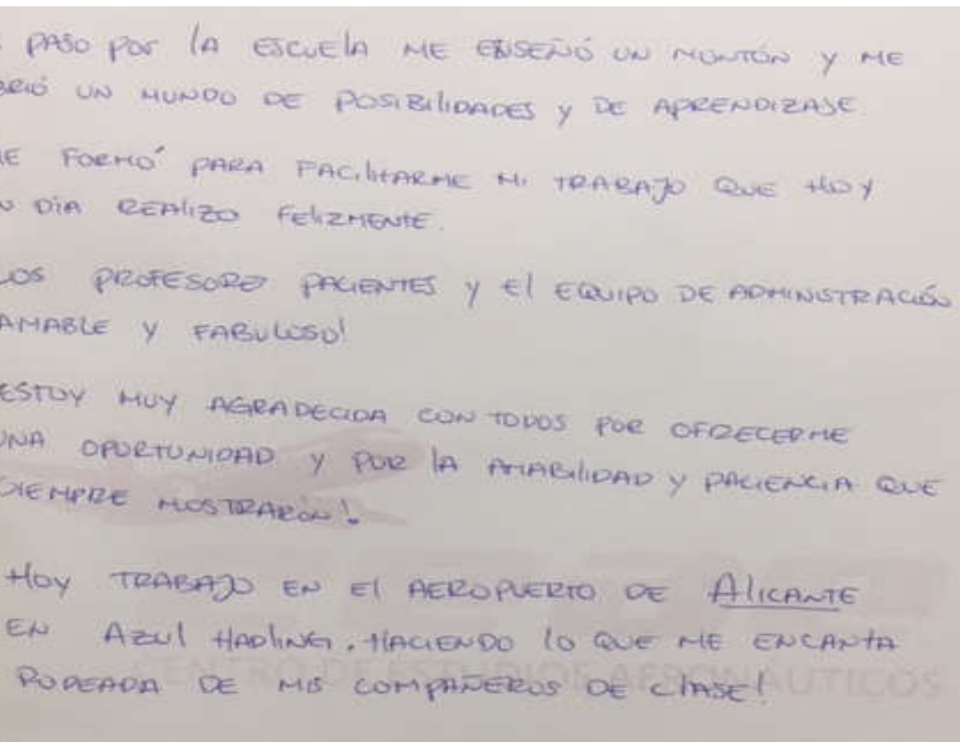 PASO POR LA ESCUELA ME ENSEÑÓ UN MONTÓN Y ME
BRIÓ UN MUNDO DE POSIBILIDADES Y DE APRENDIZAJE.
ME FORMÓ PARA FACILITARME MI TRABAJO QUE HOY
N DÍA REALIZO FELIZMENTE.
LOS PROFESORES PACIENTES Y EL EQUIPO DE ADMINISTRACIÓN
AMABLE Y FABULOSO!
ESTOY MUY AGRADECIDA CON TODOS POR OFRECERME
UNA OPORTUNIDAD Y POR LA AMABILIDAD Y PACIENCIA QUE
SIEMPRE MOSTRARÓN!
HOY TRABAJO EN EL AEROPUERTO DE ALICANTE
EN AZUL HADLING, HACIENDO LO QUE ME ENCANTA
RODEADA DE MIS COMPAÑEROS DE CLASE!
CENTRO DE ESTUDIOS AERONÁUTICOS